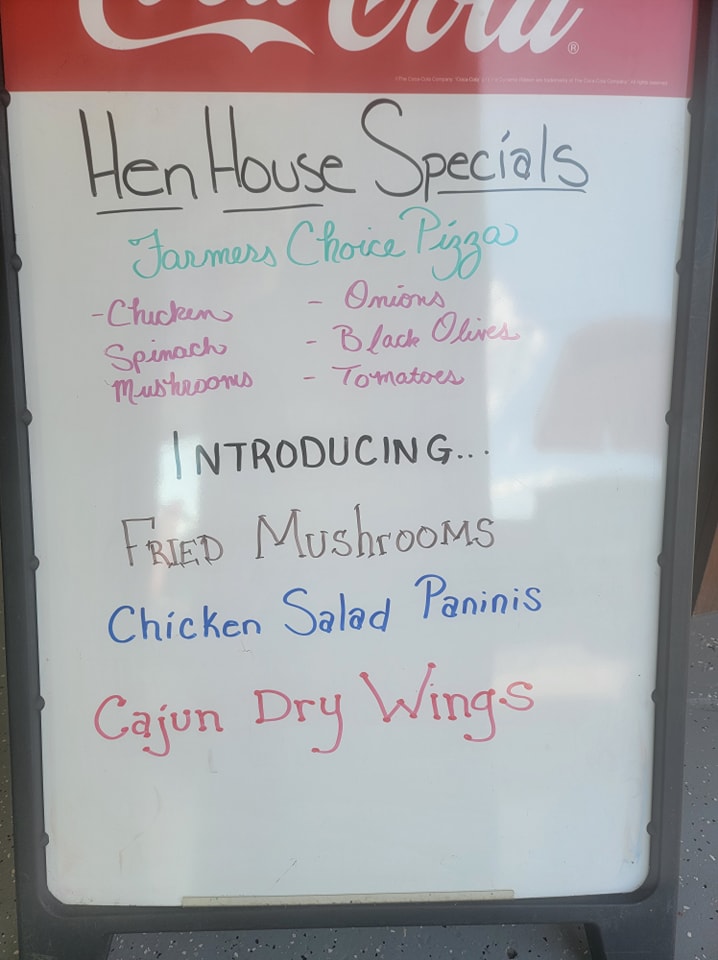 Coca-Cola
®
Hen House Specials
Farmers Choice Pizza
- Chicken - Onions
Spinach - Black Olives
Mushrooms - Tomatoes
INTRODUCING...
FRIED MushrOOMS
Chicken Salad Paninis
Cajun Dry Wings